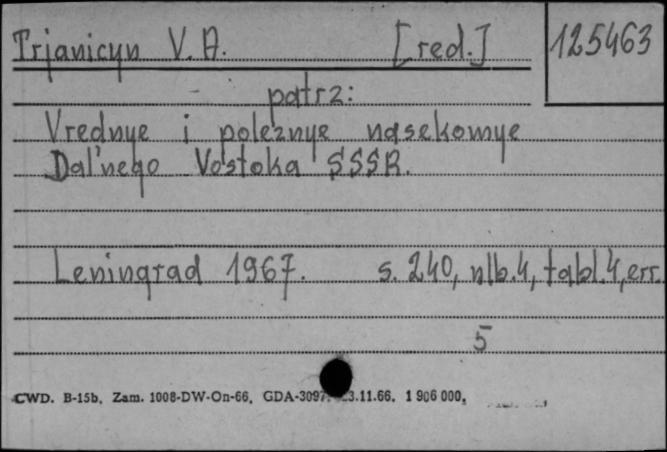 Trjanicyn V. A. [red.] 125463
patrz:
Vrednye i poleznye nasekomye
Dal'nego Vostoka SSSR.
Leningrad 1967. s. 240, nlb. 4, tabl. 4, err.
5
CWD. B-15b, Zam. 1008-DW-On-66, GDA-3097. 3.11.66. 1 906 000,